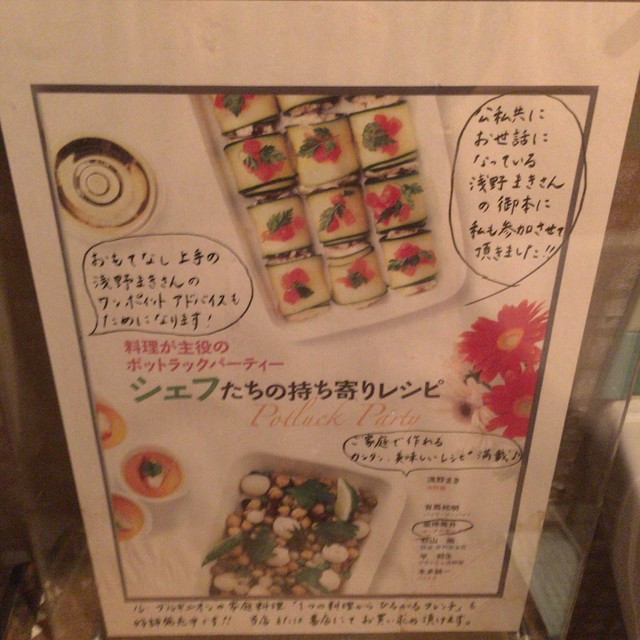 公私共に
お世話に
なっている
浅野まきさん
の御本に
私も参加させて
頂きました!!
おもてなし上手の
浅野まきさんの
ワンポイントアドバイスも
ためになります!
料理が主役の
ポットラックパーティー
シェフたちの持ち寄りレシピ
Potluck Party
ご家庭で作れる
カンタン、美味しいレシピ満載♪
浅野まき
ル・ブルギニオンの家庭料理「1つの料理からひろがるフレンチ」も
好評発売中です!! 当店または書店にてお買い求め頂けます。